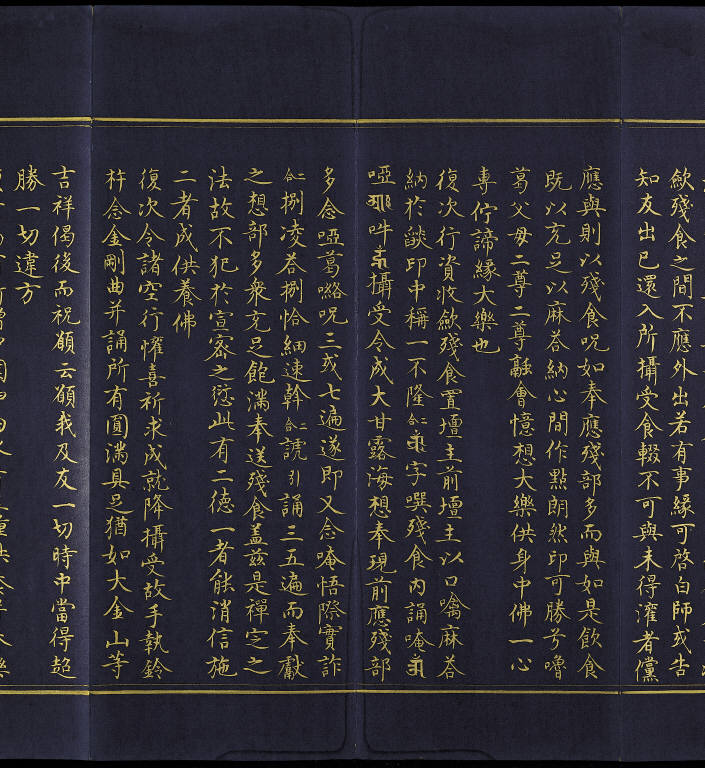 歛殘食之間不應外出若有事緣可啓白師或告
知友出已還入所攝受食輟不可與未得灌者儻
應與則以殘食呪如奉應殘部多而與如是飲食
既以充足以麻荅納心間作點朗然印可勝劣嚕
葛父母二尊二尊融會憶想大樂供身中佛一心
專佇諦緣大樂也
復次行資收歛殘食置壇主前壇主以口噙麻荅
納於燄印中稱一不隆合二字噀殘食內誦唵
啞吽攝受令成大甘露海想奉現前應殘部
多念啞葛嘝呪三或七遍遂即又念唵悟際實詐
合二捌凌荅捌恰細速幹合二謊引誦三五遍而奉獻
之想部多衆充足飽滿奉送殘食盖茲是禪定之
法故不犯於宣密之愆此有二德一者能消信施
二者成供養佛
復次令諸空行懽喜祈求成就降攝受故手執鈴
杵念金剛曲并誦所有圓滿具足猶如大金山等
吉祥偈後而祝願云願我及友一切時中當得超
勝一切違方